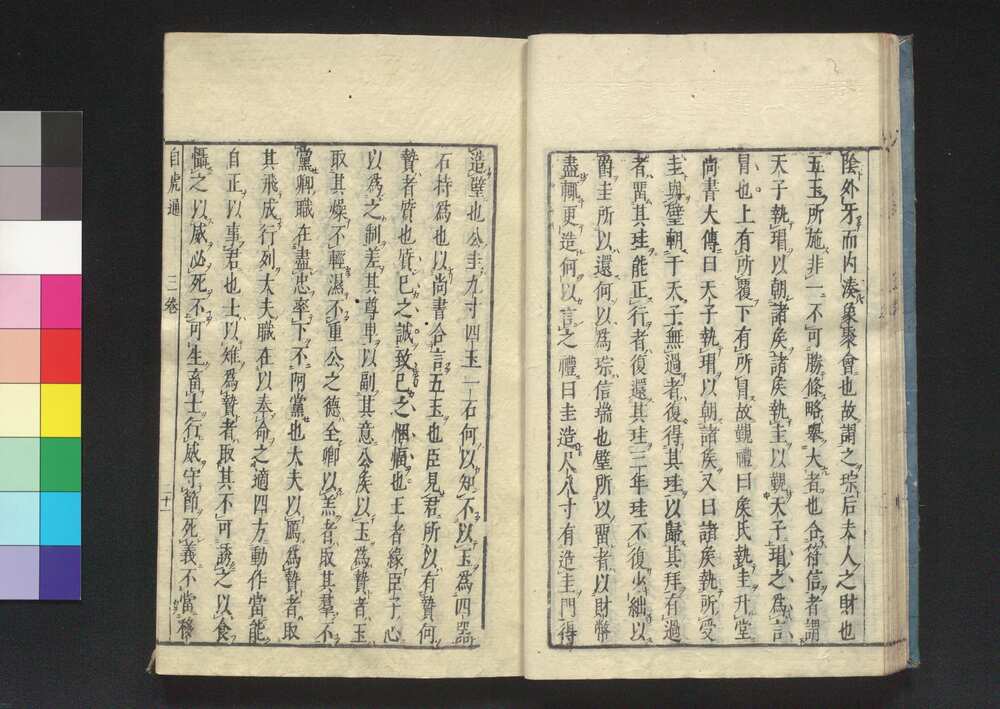 陰外牙而内湊象聚會也故謂之琮后夫人之財也
五玉所施非一不可勝條略舉大者也合符信者謂
天子執瑁以朝諸侯諸侯執圭以觀天子瑁之爲言
冒也上有所覆下有所冒故觀禮曰侯氏執圭升堂
尚書大傳曰天子執瑁以朝諸侯又曰諸侯執所受
圭與璧朝于天子無過者復得其珪以歸其拜有過
者畱其珪能正行者復還其珪三年珪不復少絀以
爵圭所以還何以爲琮信瑞也璧所以畱者以財幣
盡輒更造何以言之禮曰圭造尺八寸有造圭門得
造璧也公圭九寸四玉一石何以知不以玉爲四器
石持爲也以尚書合言五玉也臣見君所以有贄何
贄者質也質己之誠致己之悃愊也王者緣臣子心
以爲之制差其尊卑以副其意公侯以玉爲贄者玉
取其燥不輕濕不重公之德全卿以羔者取其羣不
黨卿職在盡忠率下不阿黨也大夫以鴈爲贄者取
其飛成行列大夫職在以奉命之適四方動作當能
自正以事君也士以雉爲贄者取其不可誘之以食
懾之以威必死不可生畜士行威守節死義不當移
白虎通 三卷 二十一